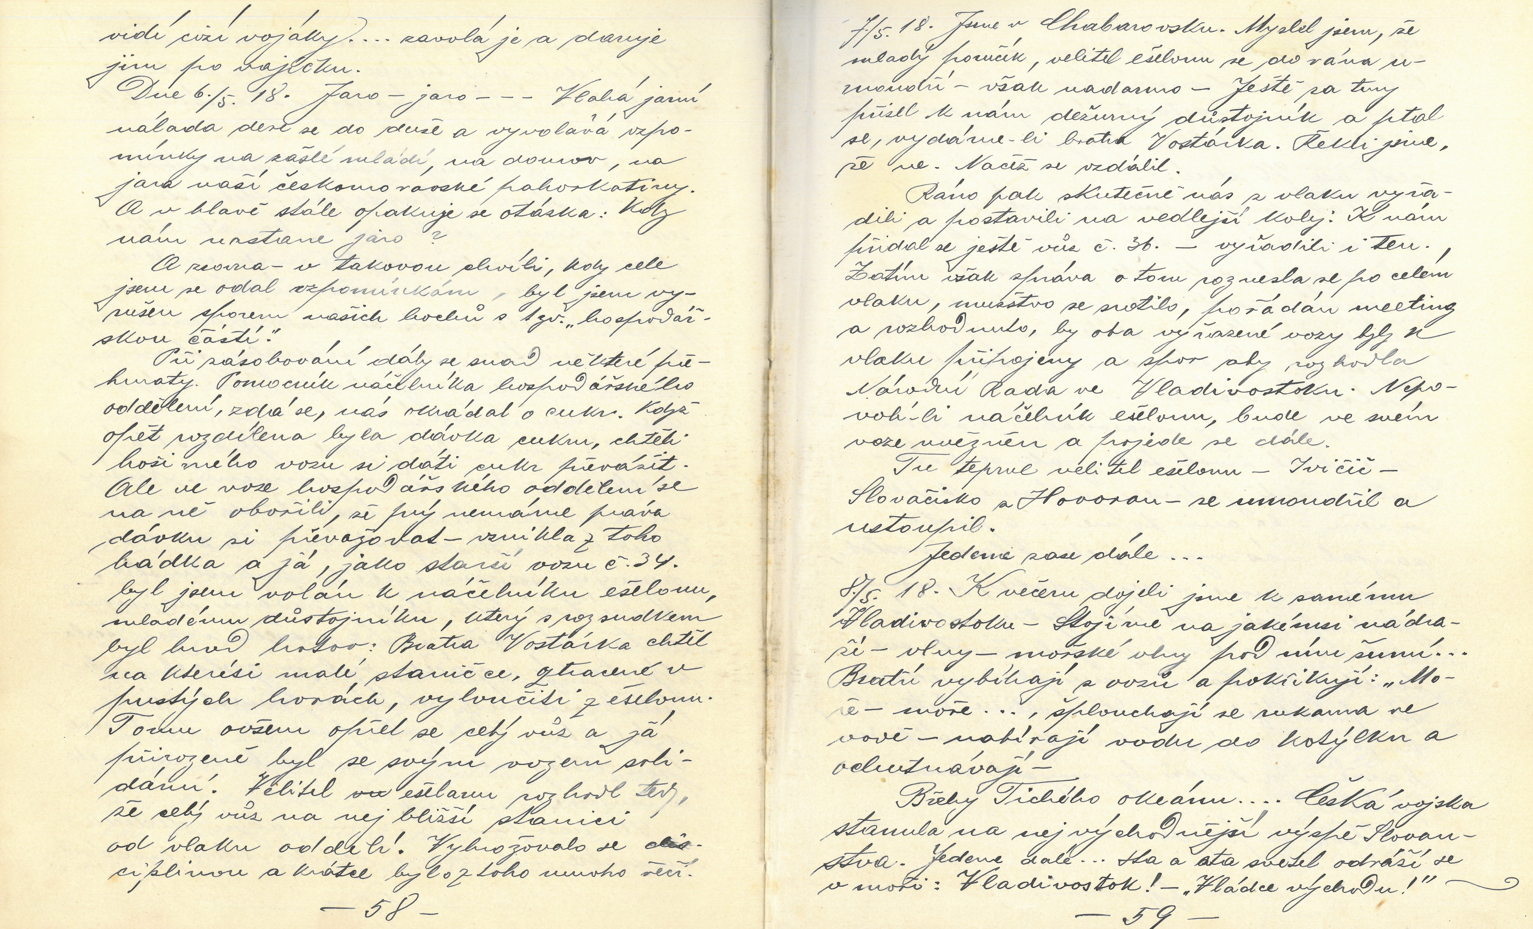 vidí cizí vojáky).... zavolá je a daruje
jim po vajíčku.
Dne 6./5. 18. Jaro – jaro – – – Vlahá jarní
nálada dere se do duše a vyvolává vzpo-
mínky na zašlé mládí, na domov, na
jara naší českomoravské pahorkatiny.
A v hlavě stále opakuje se otázka: Kdy
nám nastane jaro ?
A zrovna – v takovou chvíli, kdy cele
jsem se odal vzpomínkám, byl jsem vy-
rušen sporem našich hochů s tzv. „hospodář-
skou částí."
Při zásobování dály se snad některé pře-
hmaty. Pomocník náčelníka hospodářského
oddělení, zdá se, nás okrádal o cukr. Když
opět rozdělena byla dávka cukru, chtěli
hoši mého vozu si dáti cukr převážit.
Ale ve voze hospodářského oddělení se
na ně obořili, že prý nemáme práva
dávku si převažovat – vznikla z toho
hádka a já, jako starší vozu č. 34.
byl jsem volán k náčelníku ešelonu,
mladému důstojníku, který s rozsudkem
byl hned hotov: Bratra Vostárka chtěl
na kterési malé staničce, ztracené v
pustých horách, vyloučiti z ešelonu.
Tomu ovšem opřel se celý vůz a já
přirozeně byl se svým vozem soli-
dární. Velitel ešelonu rozhodl tedy,
že celý vůz na nejbližší stanici
od vlaku oddělí. Vyhrožovalo se dis-
ciplinou a krátce bylo z toho mnoho řečí.
– 58 –
7/5. 18. Jsme v Chabarovsku. Myslel jsem, že
mladý poručík, velitel ešelonu se do rána u-
moudří – však nadarmo – Ještě za tmy
přišel k nám dežurný důstojník a ptal
se, vydáme-li bratra Vostárka. Řekli jsme,
že ne. Načež se vzdálil.
Ráno pak skutečně nás z vlaku vyřa-
dili a postavili na vedlejší kolej: K nám
přidal se ještě vůz č. 36. – vyřadili i ten.
Zatím však zpráva o tom roznesla se po celém
vlaku, mužstvo se srotilo, pořádán meeting
a rozhodnuto, by oba vyřazené vozy byly k
vlaku připojeny a spor aby rozhodla
Národní Rada ve Vladivostoku. Nepo-
volí-li náčelník ešelonu, bude ve svém
voze uvězněn a pojede se dále.
Tu teprve velitel ešelonu – Ivičič –
Slovačisko z Hovoran – se umoudřil a
ustoupil.
Jedeme zase dále ...
8/5. 18. K večeru dojeli jsme k samému
Vladivostoku – Stojíme na jakémsi nádra-
ží – vlny – mořské vlny pod ním šumí...
Bratří vybíhají z vozů a pokřikují: „Mo-
ře – moře ..., šplouchají se rukama ve
vodě – nabírají vodu do kotýlku a
ochutnávají –
Břehy Tichého okeánu.... Česká vojska
stanula na nejvýchodnější výspě Slovan-
stva. Jedeme dále... Sta a sta světel odráží se
v moři: Vladivostok! – „Vládce východu!"
– 59 –